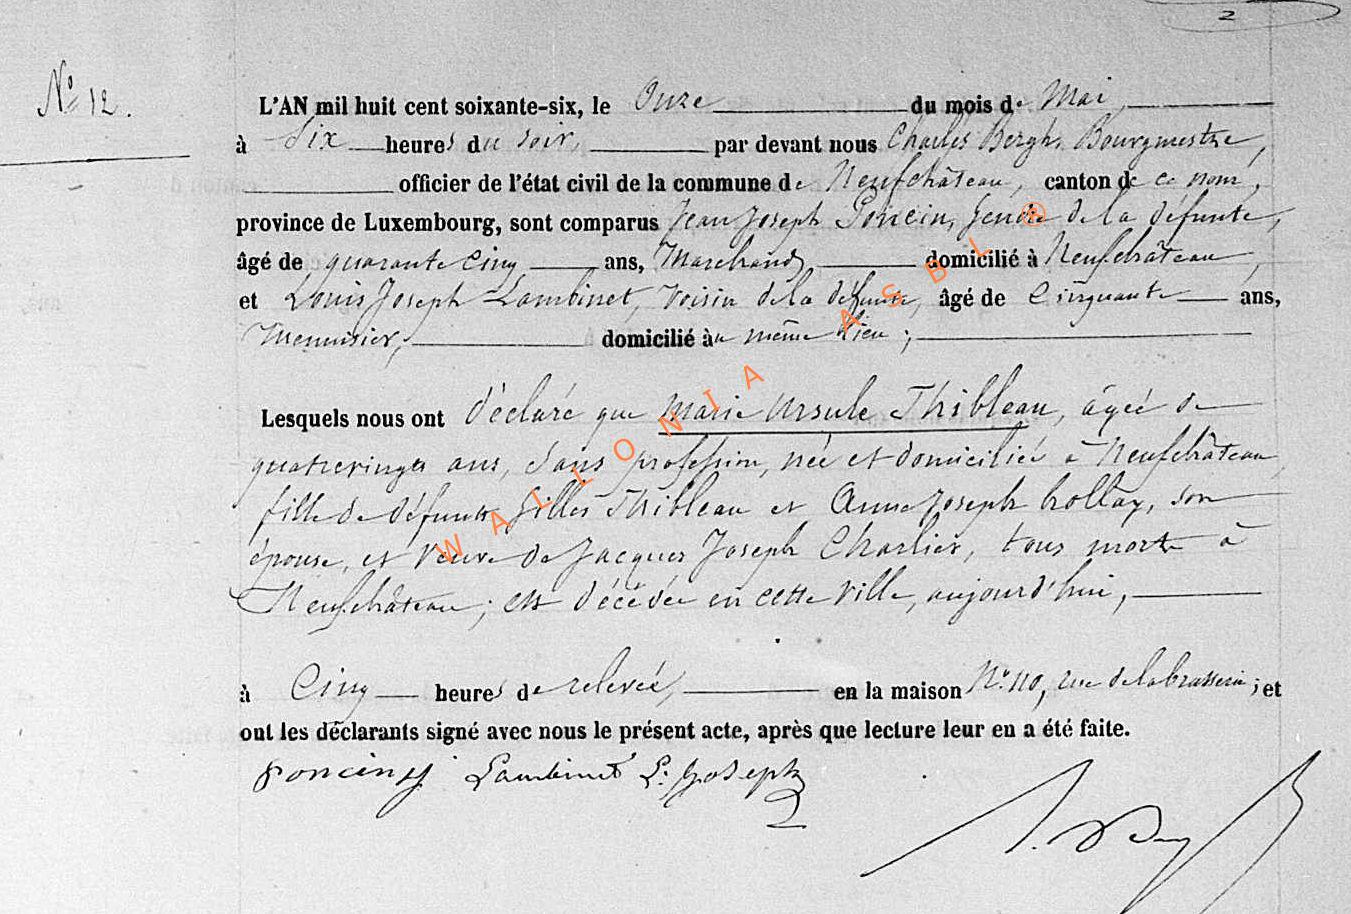 2
N° 12.
L'AN mil huit cent soixante-six, le Onze du mois de Mai,
à Six heures du soir, par devant nous Charles Bergh, Bourgmestre,
officier de l'état civil de la commune de Neufchâteau, canton de ce nom,
province de Luxembourg, sont comparus Jean Joseph Poncin, Gendre de la défunte,
âgé de quarante cinq ans, Marchand, domicilié à Neufchâteau,
et Louis Joseph Lambinet, Voisin de la défunte, âgé de Cinquante ans,
Menuisier, domicilié au même lieu ;
Lesquels nous ont déclaré que Marie Ursule Thibleau, âgée de
quatrevingts ans, sans profession, née et domiciliée à Neufchâteau,
fille de défunts Gilles Thibleau et Anne Joseph hollay, son
épouse, et Veuve de Jacques Joseph Charlier, tous morts à
Neufchâteau ; est décédée en cette Ville, aujourd'hui,
à Cinq heures de relevée, en la maison N° 110, rue de la brasserie ; et
ont les déclarants signé avec nous le présent acte, après que lecture leur en a été faite.
poncin jj Lambinet L: Joseph
WALLONIA ASBL ®